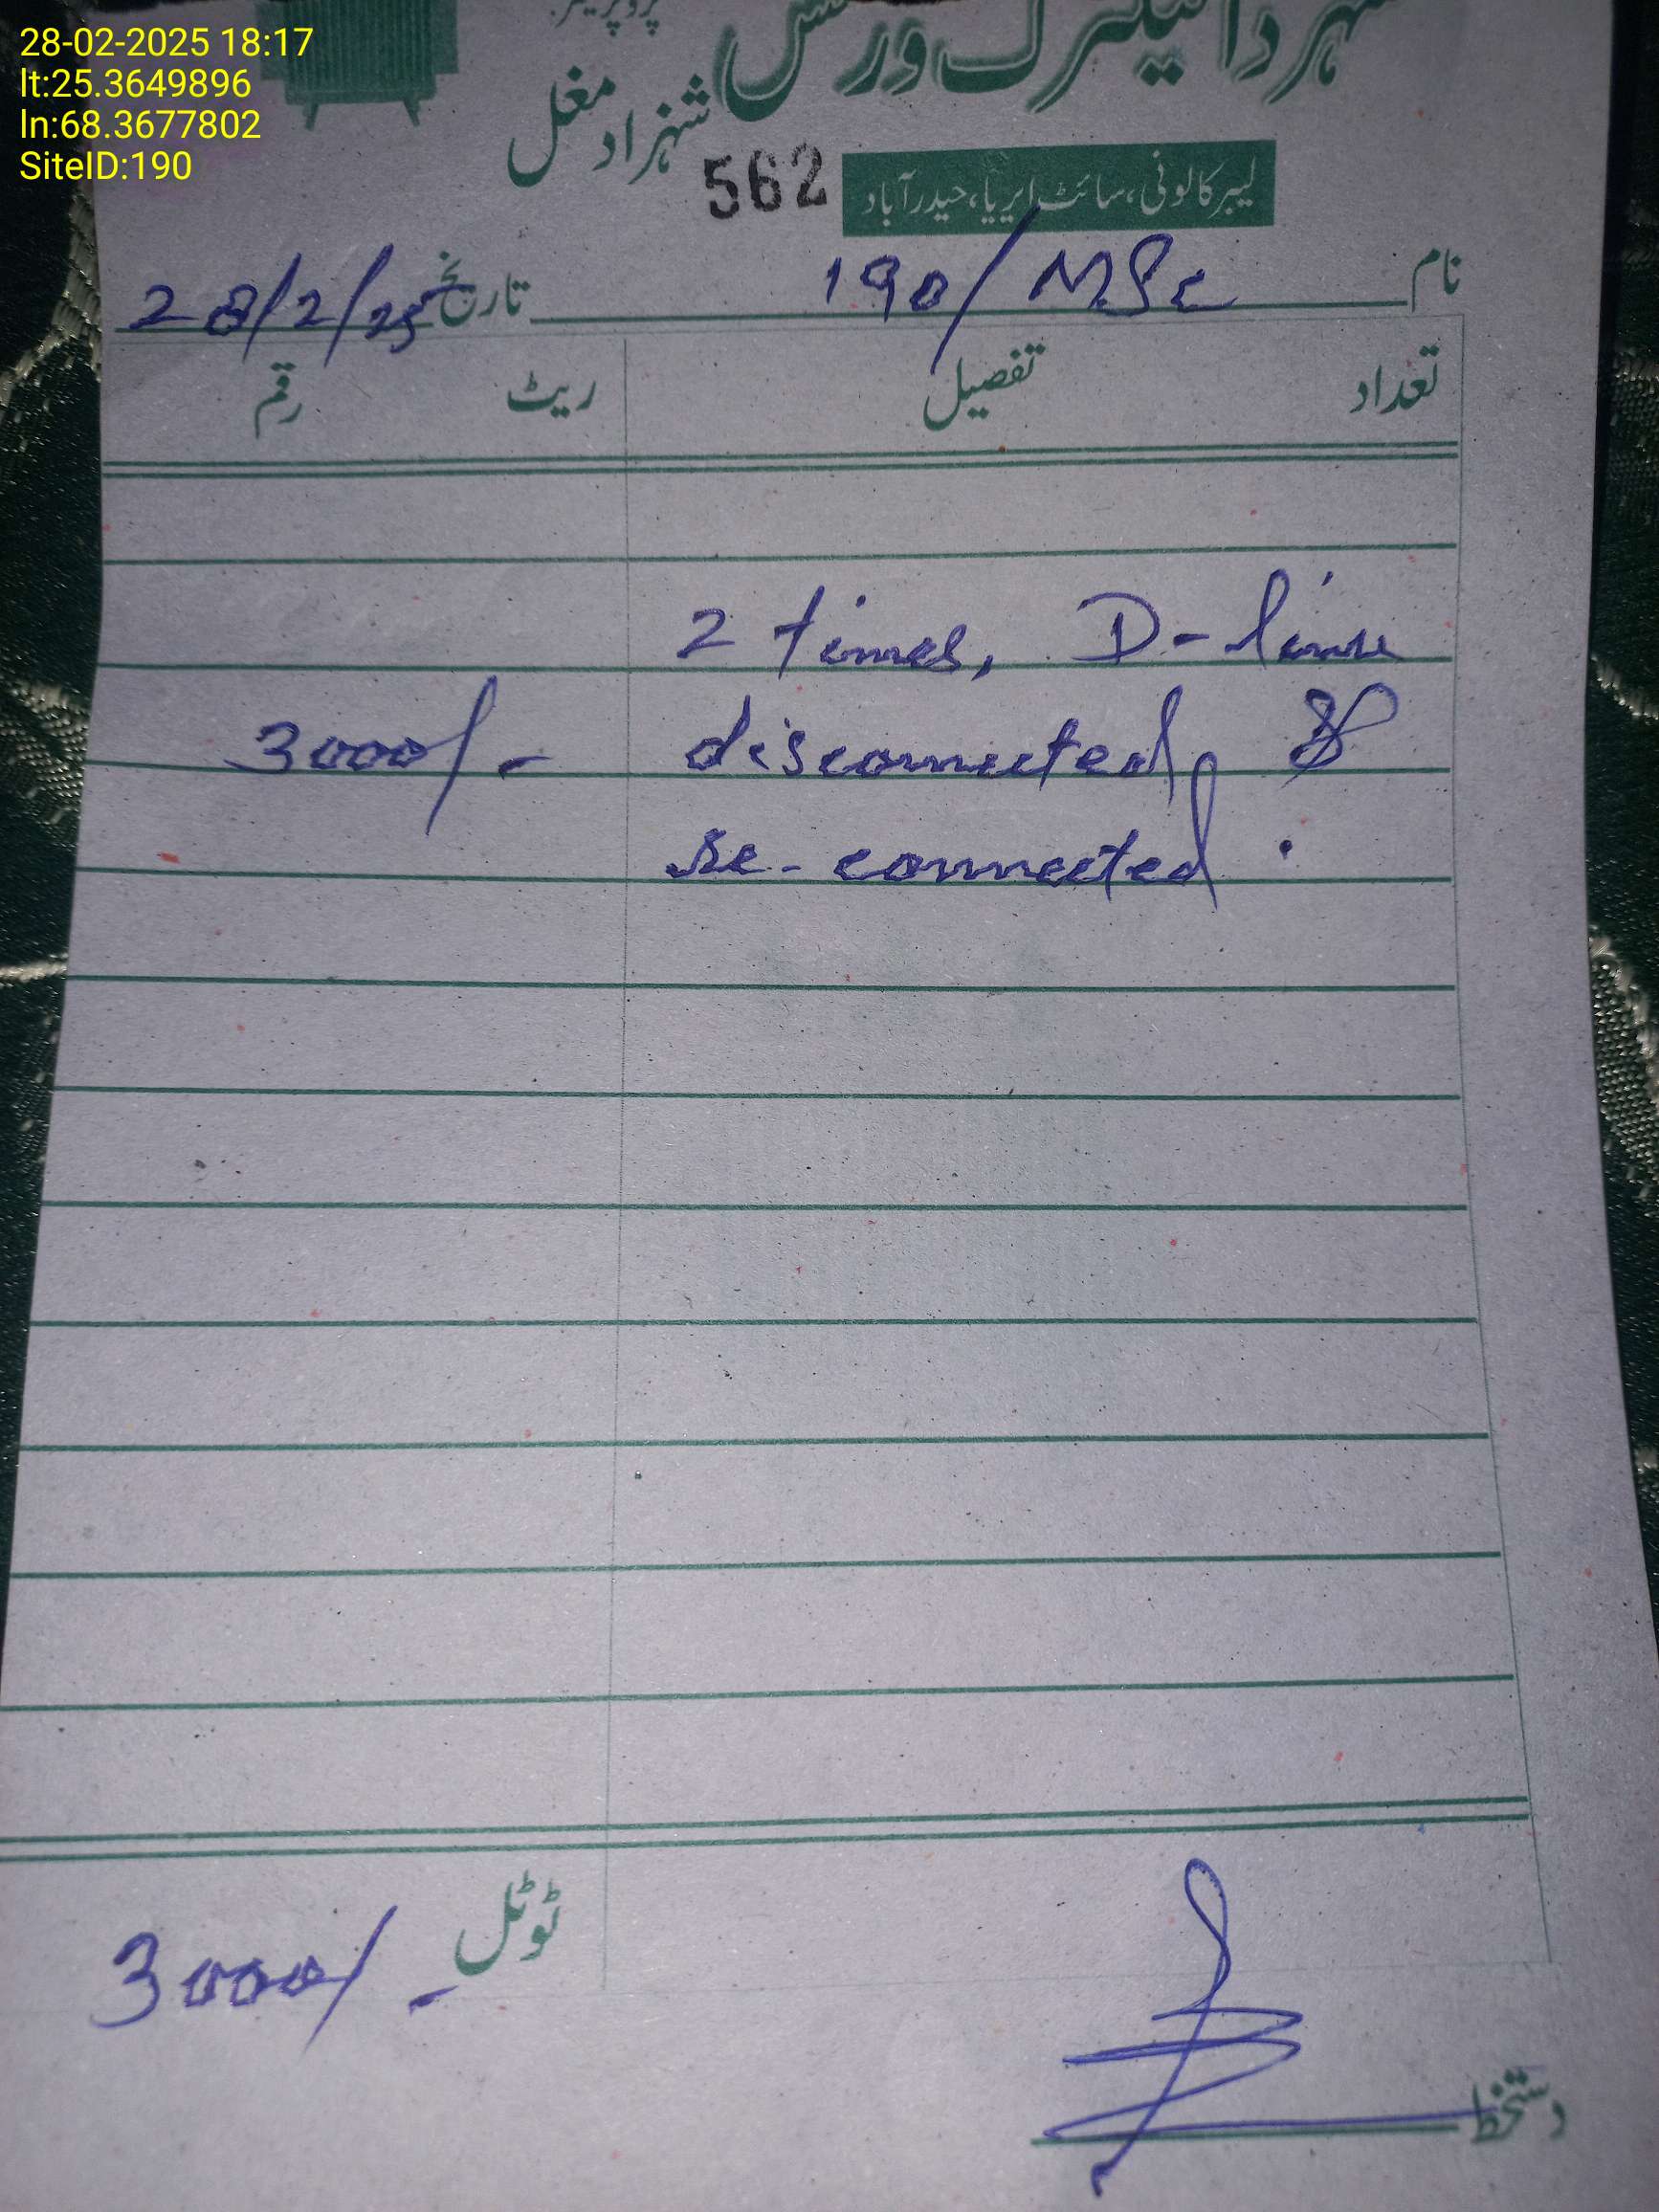 28-02-2025 18:17
lt:25.3649896
ln:68.3677802
SiteID:190
پروپرائیٹر:
الیکٹرک ورکس
شہزاد مغل
562
لیبر کالونی، سائٹ ایریا، حیدرآباد
نام 190/MSc تاریخ 28/2/25
تعداد تفصیل ریٹ رقم
2 times, D-line
disconnected & 3000/-
re-connected.
ٹوٹل 3000/-
دستخط